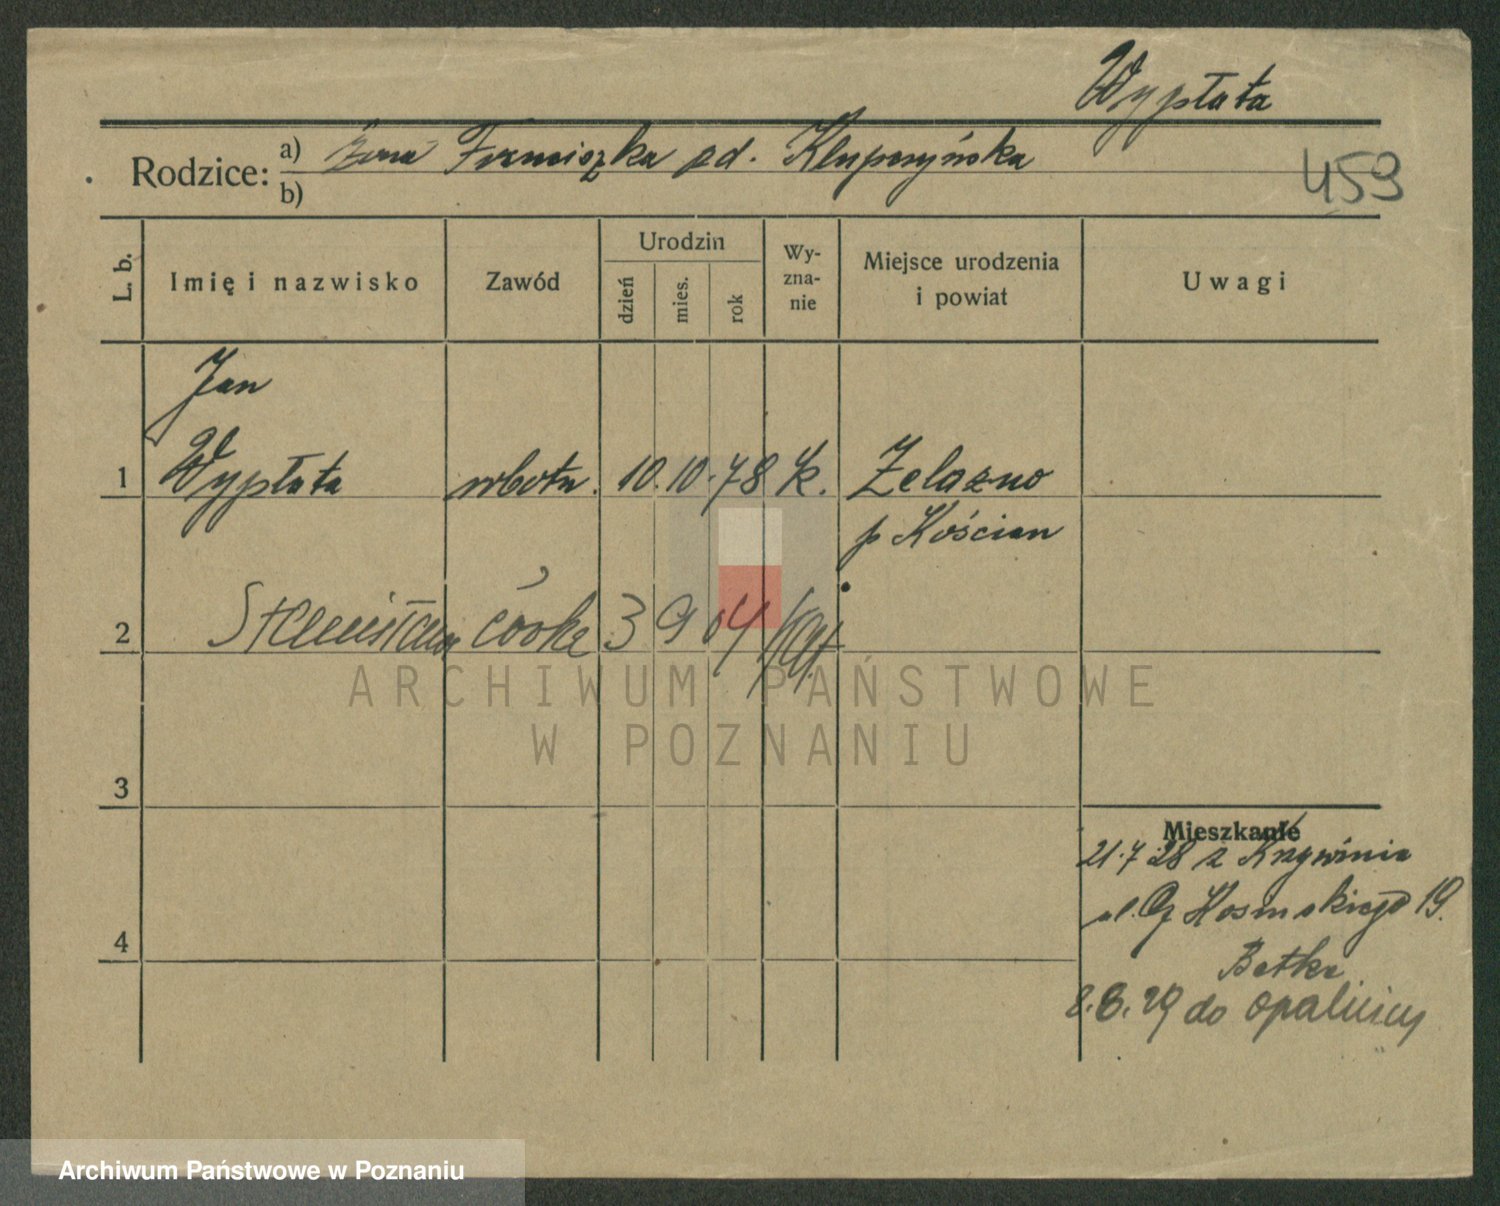 Wypłata
Rodzice: a) żona Franciszka zd. Klupczyńska
b)
459
L. b. Imię i nazwisko Zawód Urodzin dzień mies. rok Wy-zna-nie Miejsce urodzenia i powiat Uwagi
Jan
1 Wypłata robotn. 10. 10. 78 k. Żelazno
p Kościan
2 Stanisława córka 3 9 04 kat
3
4
Mieszkanie
21.7.28 z Krzywinia
ul. Kosinskiego 19.
Batka
8.8.29 do Opalenicy
ARCHIWUM PAŃSTWOWE
W POZNANIU
Archiwum Państwowe w Poznaniu